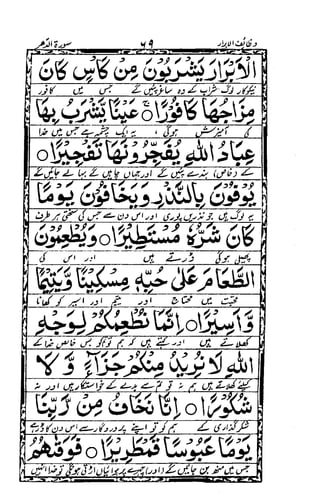 وظائف الابرار ۶۹ سورۃ الدھر
الْاَبْرَارَ يَشْرَبُوْنَ مِنْ كَاْسٍ كَانَ
نیکوکار لوگ شراب کے وہ ساغر پئیں گے جس میں کافور
مِزَاجُهَا كَافُوْرًا ۚ عَيْنًا يَّشْرَبُ بِهَا
کی آمیزش ہوگی یہ ایک چشمہ ہے جس میں خدا
عِبَادُ اللّٰهِ يُفَجِّرُوْنَهَا تَفْجِيْرًا ۝
کے خاص بندے پئیں گے اور جہاں چاہیں گے بہا لے جائیں گے
يُوْفُوْنَ بِالنَّذْرِ وَيَخَافُوْنَ يَوْمًا
یہ لوگ ہیں جو نذریں پوری اور اس دن سے جس کی سختی ہر طرف
كَانَ شَرُّهٗ مُسْتَطِيْرًا ۝ وَيُطْعِمُوْنَ
پھیلی ہوگی ڈرتے ہیں اور اس کی
الطَّعَامَ عَلٰى حُبِّهٖ مِسْكِيْنًا وَّيَتِيْمًا
محبت میں محتاج اور یتیم اور اسیر کو کھانا
وَّاَسِيْرًا ۝ اِنَّمَا نُطْعِمُكُمْ لِوَجْهِ
کھلاتے ہیں اور کہتے ہیں کہ ہم تو تم کو بس خالص خدا کے
اللّٰهِ لَا نُرِيْدُ مِنْكُمْ جَزَآءً وَّ لَا
لیے کھلاتے ہیں ہم نہ تم سے بدلے کے خواستگار ہیں اور نہ
شُكُوْرًا ۝ اِنَّا نَخَافُ مِنْ رَّبِّنَا
شکر گذاری کے ہم کو تو اپنے پروردگار سے اس دن کا ڈر ہے
يَوْمًا عَبُوْسًا قَمْطَرِيْرًا ۝ فَوَقٰىهُمُ
جس میں منہ بن جائیں گے (اور) چہرے پر ہوائیاں اڑتی ہوگی تو خدا انہیں